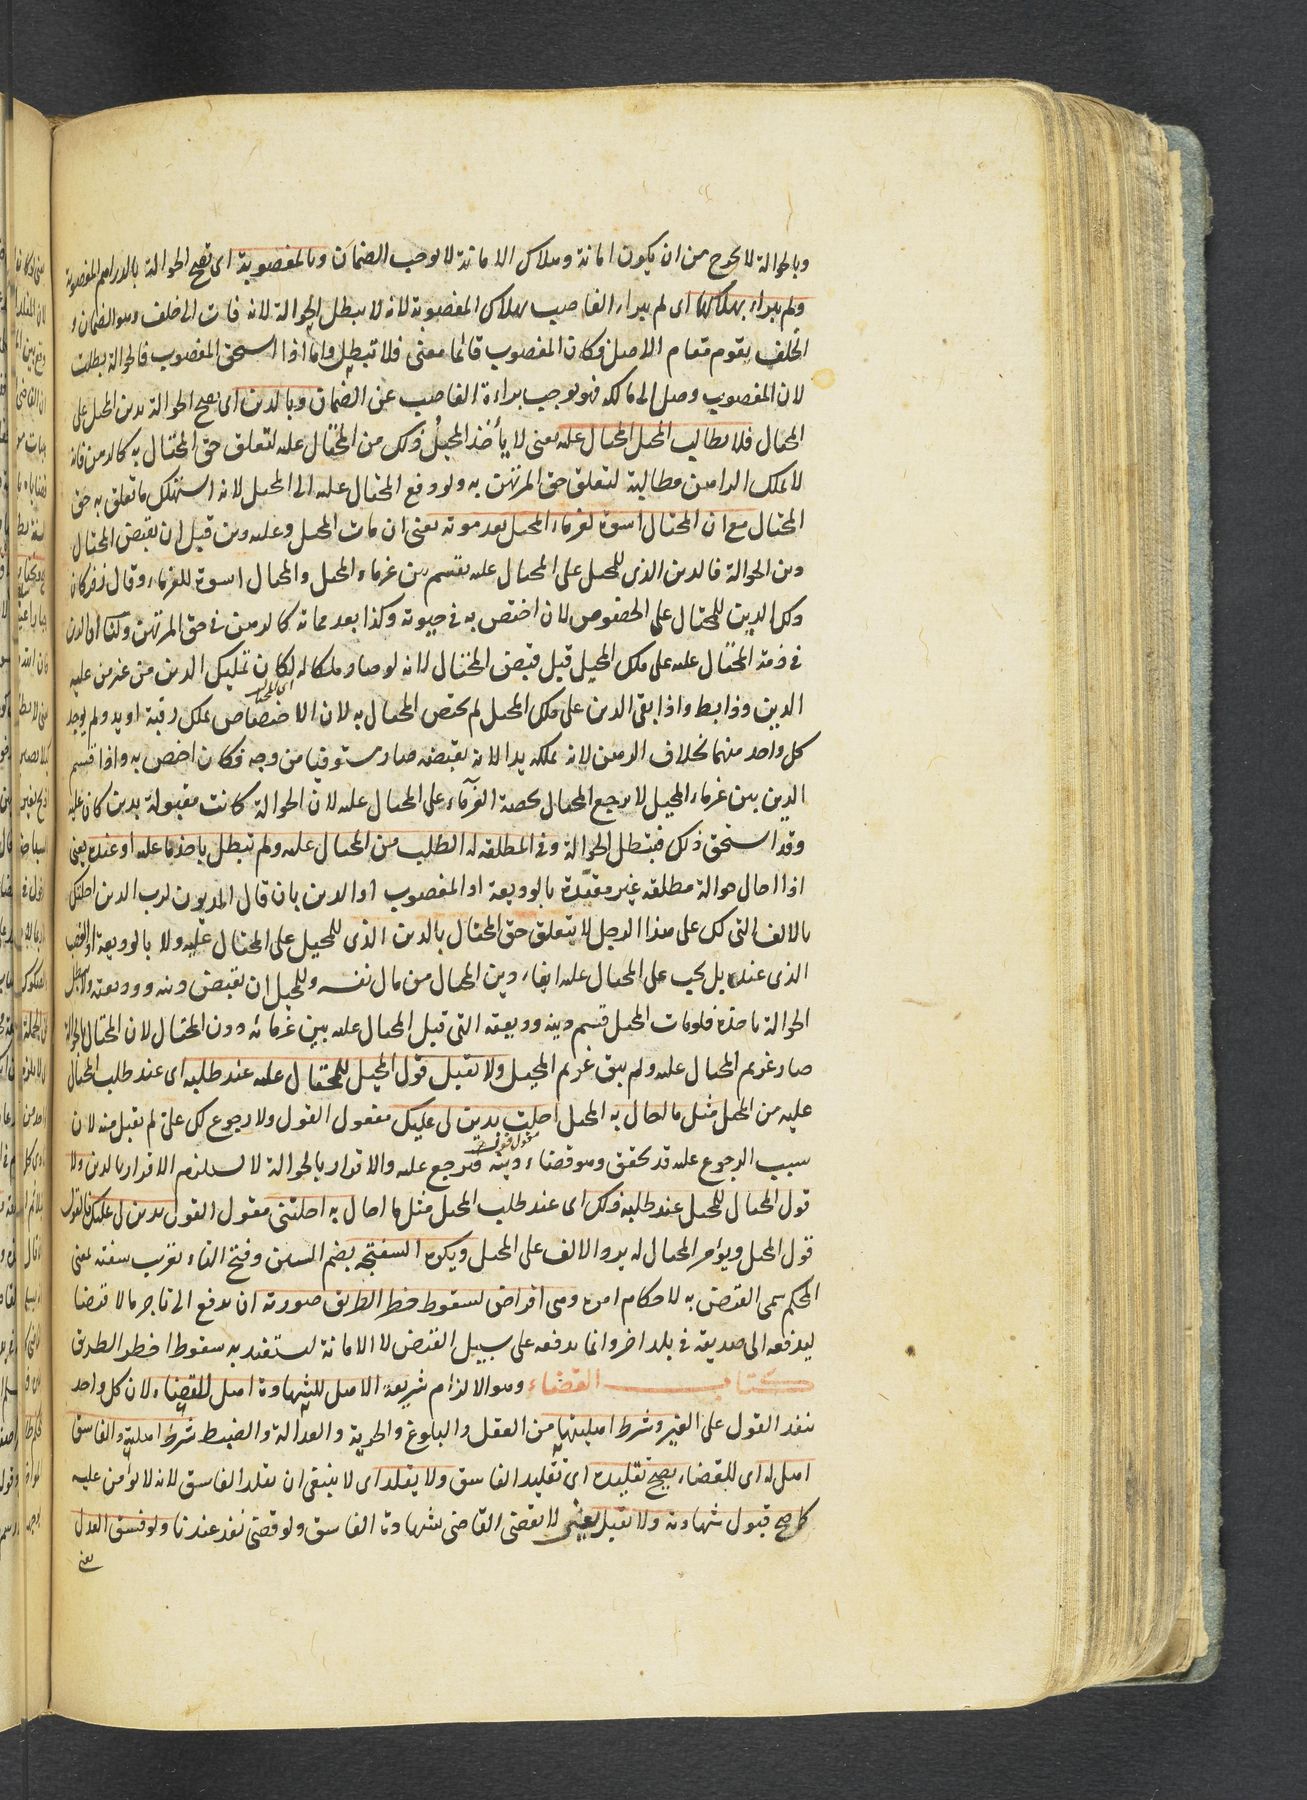 وبالحوالة لا يخرج من ان يكون امانة وهلاك الامانة لا يوجب الضمان وبالمغصوبة اى تصح الحوالة بالدراهم المغصوبة
ولم يبراء بهلاكها اى لم يبراء الغاصب بهلاك المغصوبة لانه لا يبطل الحوالة لانه فات الى خلف وهو الضمان و
الخلف يقوم مقام الاصل فكان المغصوب قائما معنى فلا تبطل واما اذا استحق المغصوب فالحوالة بطلت
لان المغصوب وصل الى مالكه فهو يوجب براءة الغاصب عن الضمان وبالدين اى تصح الحوالة بدين المحيل على
المحتال فلا يطالب المحيل المحتال عليه يعنى لا يأخذ المحيل ذلك من المحتال عليه لتعلق حق المحتال به كالرهن فانه
لا يملك الراهن مطالبة لتعلق حق المرتهن به ولو دفع المحتال عليه الى المحيل لانه استهلك ما تعلق به حق
المحتال مع ان المحتال اسوة لغرماء المحيل بعد موته يعنى ان مات المحيل وعليه دين قبل ان يقبض المحتال
دين الحوالة فالدين الذى للمحيل على المحتال عليه يقسم بين غرماء المحيل والمحتال اسوة للغرماء وقال زفر كان
ذلك الدين للمحتال على الخصوص لان اختص به فى حيوته وكذا بعد مماته كالرهن فى حق المرتهن ولنا ان الدين
فى ذمة المحتال عليه على ملك المحيل قبل قبض المحتال لانه لو صار ملكا له لكان تمليك الدين من غير من عليه
الدين وذا بط واذا بقى الدين على ملك المحيل لم يختص المحتال به لان الاختصاص بملك رقبة او يد ولم يوجد
كل واحد منهما بخلاف الرهن لانه يملكه يدا لانه بقبضه صار مستوفيا من وجه فكان اخص به واذا قسم
الدين بين غرماء المحيل لا يرجع المحتال بحصة الغرماء على المحتال عليه لان الحوالة كانت مقبولة بدين كان عليه
وقد استحق ذلك فتبطل الحوالة وفى المطلقه له الطلب من المحتال عليه ولم تبطل باخذ ما عليه او عنده يعنى
اذا احال حوالة مطلقه غير مقيدة بالوديعة او المغصوب او الدين بان قال المديون لرب الدين احلتك
بالالف التى لك على هذا الرجل لا يتعلق حق المحتال بالدين الذى للمحيل على المحتال عليه ولا بالوديعة او الغصب
الذى عنده بل يجب على المحتال عليه ايفاء دين المحتال من مال نفسه وللمحيل ان يقبض دينه ووديعته ولا يبطل
الحوالة باخذه فلو مات المحيل قسم دينه ووديعته التى قبل المحتال عليه بين غرمائه دون المحتال لان المحتال بالحوالة
صار غريم المحتال عليه ولم يبق غريم المحيل ولا تقبل قول المحيل للمحتال عليه عند طلبه اى عند طلب المحتال
عليه من المحيل مثل ما احال به المحيل احلت بدين لى عليك مفعول القول ولا رجوع لك على لم يقبل منه لان
سبب الرجوع عليه قد تحقق وهو قضاء دينه فيرجع عليه والاقرار بالحوالة لا يستلزم الاقرار بالدين ولا
قول المحتال للمحيل عند طلبه ذلك اى عند طلب المحيل مثل ما احال به احلتنى مقول القول بدين لى عليك فالقول
قول المحيل ويؤمر المحتال له برد الالف على المحيل ويكره السفتجه بضم السين وفتح التاء تعريب سفته بمعنى
المحكم سمى القرض به لاحكام امره وهى اقراض لسقوط خطر الطريق صورته ان يدفع الى تاجر مالا قرضا
ليدفعه الى صديقه فى بلد اخر وانما يدفعه على سبيل القرض لا الامانة ليستفيد به سقوط خطر الطريق
كتاب القضاء وهو الالزام شريعة الاهل للشهادة اهل للقضاء لان كل واحد
ينفذ القول على الغير وشرط اهليتها من العقل والبلوغ والحرية والعدالة والضبط شرط اهليته والفاسق
اهل له اى للقضاء يصح تقليده اى تقليد الفاسق ولا يقلد اى لا ينبغى ان يقلد الفاسق لانه لا يؤمن عليه
كما صح قبول شهادته ولا تقبل يعنى لا يقضى القاضى بشهادة الفاسق ولو قضى نفذ عندنا ولو فسق العدل
يعنى